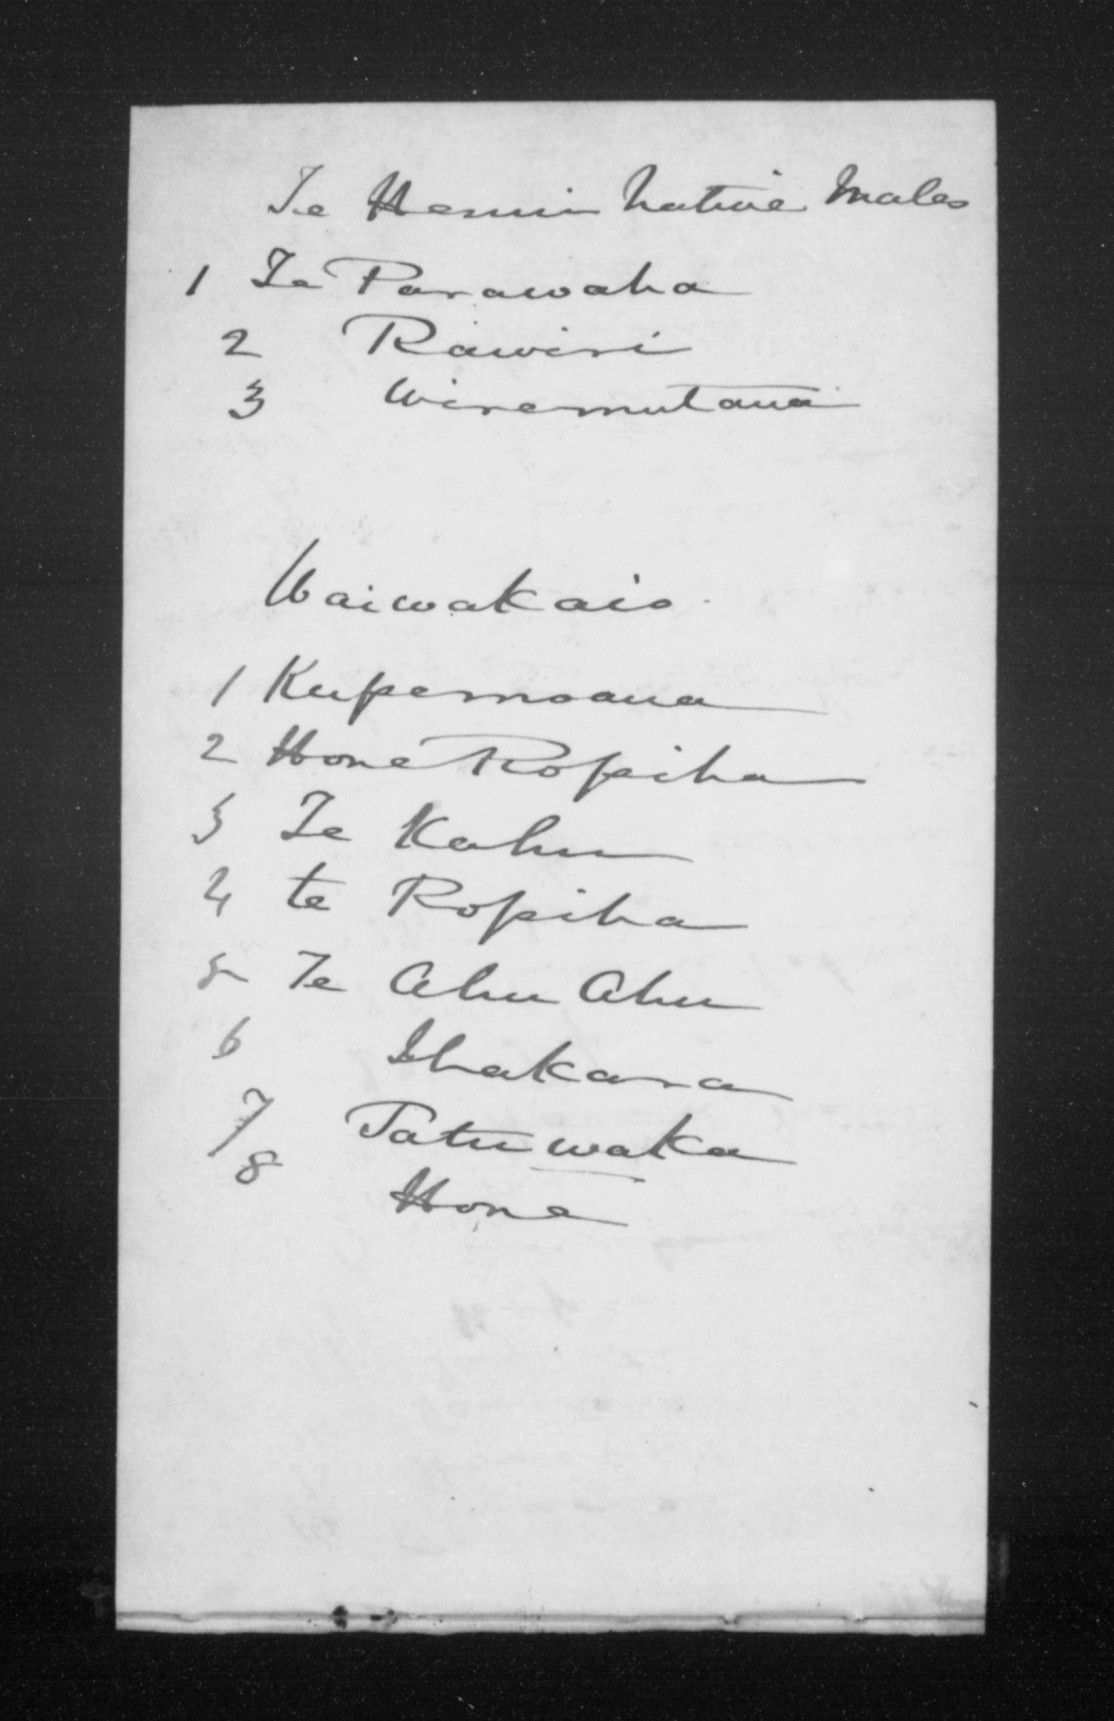 Te Henui Native Males
1 Te Parawaha
2 Rawiri
3 Wiremutana
Waiwakaio
1 Kupemoana
2 Hone Ropiha
3 Te Kahu
4 te Ropiha
5 Te Ahu Ahu
6 Ihakara
7 Tatuwaka
8 Hone